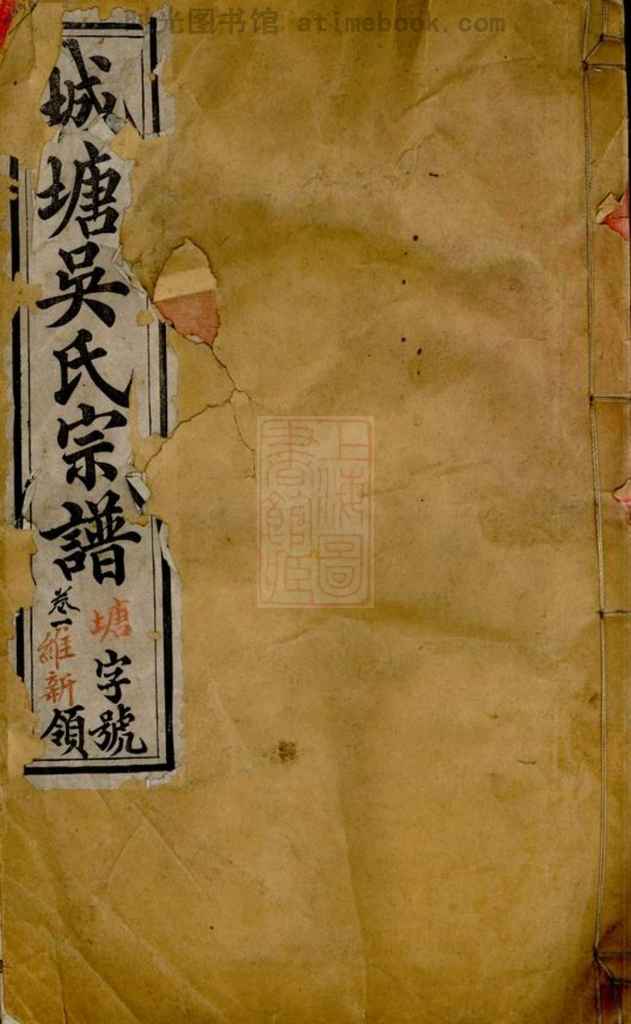 时光图书馆 atimebook.com
城塘吳氏宗譜
卷一
塘字號
維新領
上海圖
書館藏